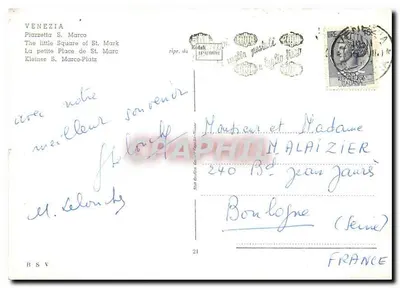 VENEZIA
Piazzetta S. Marco
The little Square of St. Mark
La petite Place de St. Marc
Kleiner S. Marco-Platz
ripr.
Kodak
VENEZIA
avec notre
meilleur souvenir
Monsieur et Madame
MALAIZIER
240 Bd Jean Jaurès
Boulogne
(Seine)
FRANCE
CPARAMA
24
B S V